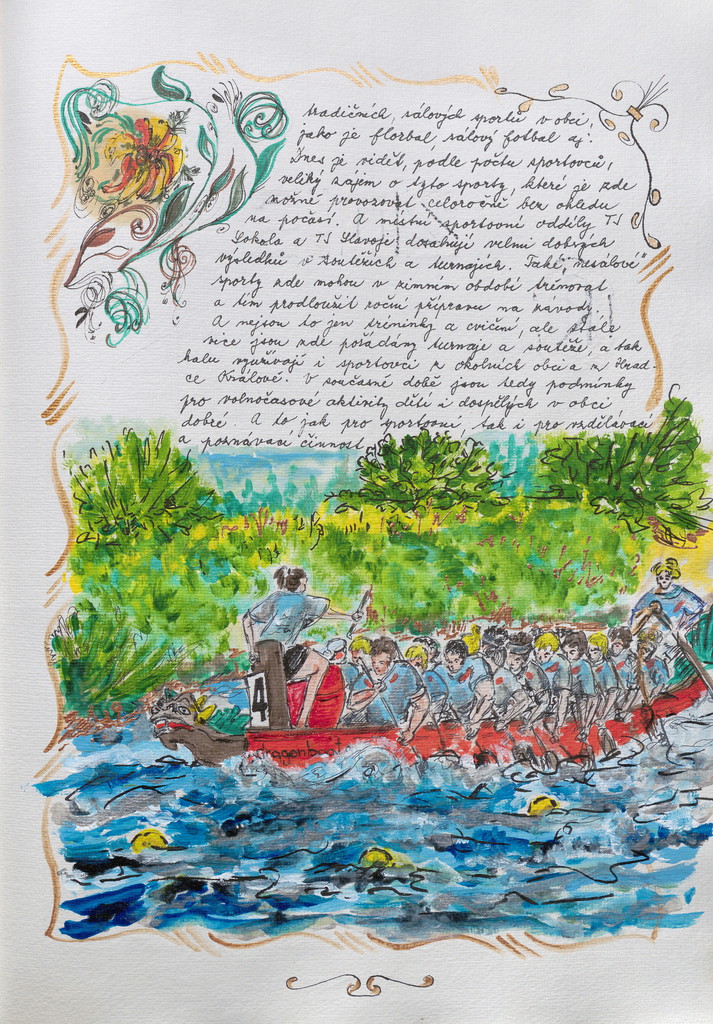 tradičních, sálových sportů v obci,
jako je florbal, sálový fotbal aj.
Dnes je vidět, podle počtu sportovců,
veliký zájem o tyto sporty, které je zde
možné provozovat celoročně bez ohledu
na počasí. A místní sportovní oddíly TJ
Sokola a TJ Slavoje dosahují velmi dobrých
výsledků v soutěžích a turnajích. Také „nesálové"
sporty zde mohou v zimním období trénovat
a tím prodloužit roční přípravu na závody.
A nejsou to jen tréninky a cvičení, ale stále
více jsou zde pořádány turnaje a soutěže, a tak
halu využívají i sportovci z okolních obcí a z Hrad-
ce Králové. V současné době jsou tedy podmínky
pro volnočasové aktivity dětí i dospělých v obci
dobré. A to jak pro sportovní, tak i pro vzdělávací
a poznávací činnost.
4
dragonboat